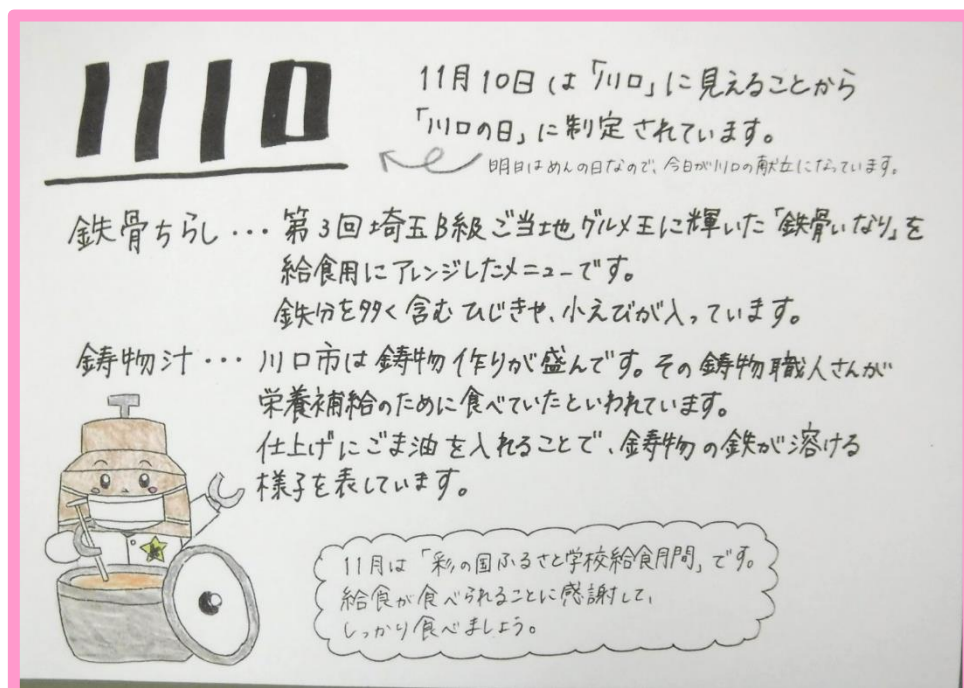 1110
11月10日は「川口」に見えることから
「川口の日」に制定されています。
明日はめんの日なので、今日が川口の献立になっています。
鉄骨ちらし・・・第3回埼玉B級ご当地グルメ王に輝いた「鉄骨いなり」を
給食用にアレンジしたメニューです。
鉄分を多く含むひじきや、小えびが入っています。
鋳物汁・・・川口市は鋳物作りが盛んです。その鋳物職人さんが
栄養補給のために食べていたといわれています。
仕上げにごま油を入れることで、鋳物の鉄が溶ける
様子を表しています。
11月は「彩の国ふるさと学校給食月間」です。
給食が食べられることに感謝して、
しっかり食べましょう。